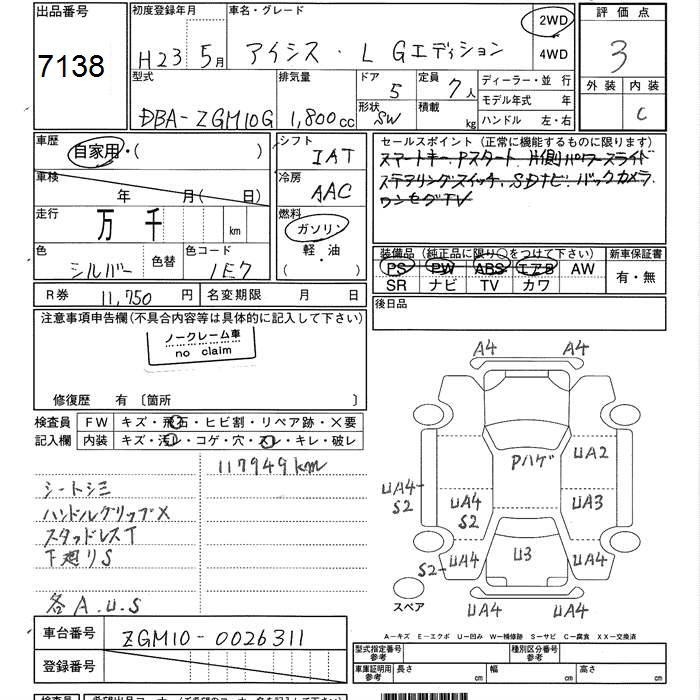 出品番号
7138
初度登録年月
H23 5月
車名・グレード
アイシス・L Gエディション
2WD
4WD
評価点
3
外装 内装
C
型式
DBA-ZGM10G
排気量
1,800cc
ドア
5
形状
SW
定員
7人
積載
kg
ディーラー・並行
モデル年式 年
ハンドル 左・右
車歴
自家用・( )
車検
年 月( 日)
走行
万 千 km
色
シルバー
色替
色コード
1E7
シフト
IAT
冷房
AAC
燃料
ガソリン
軽・油
セールスポイント (正常に機能するものに限ります)
スマートキー. Pスタート. 片側パワースライド
ステアリングスイッチ. SDナビ. バックカメラ.
ワンセグTV
装備品 (純正品に限り○をつけて下さい)
PS PW ABS エアB AW
SR ナビ TV カワ
新車保証書
有・無
R券 11,750 円
名変期限 月 日
後日品
注意事項申告欄(不具合内容等は具体的に記入して下さい)
ノークレーム車
no claim
修復歴 有 〔箇所 〕
検査員
記入欄
FW キズ・飛石・ヒビ割・リペア跡・×要
内装 キズ・汚レ・コゲ・穴・スレ・キレ・破レ
117949km
シートシミ
ハンドルグリップX
スタッドレスT
下廻りS
各A.U.S
A4 A4
Pハゲ
UA2
UA4-
S2
UA4
S2
UA3
S2-UA4
U3
UA4
スペア
UA4 UA4
A-キズ E-エクボ U-凹み W-補修跡 S-サビ C-腐食 XX-交換済
車台番号
ZGM10-0026311
登録番号
型式指定番号
参考
種別区分番号
参考
車庫証明用
参考
長さ cm
幅 cm
高さ cm